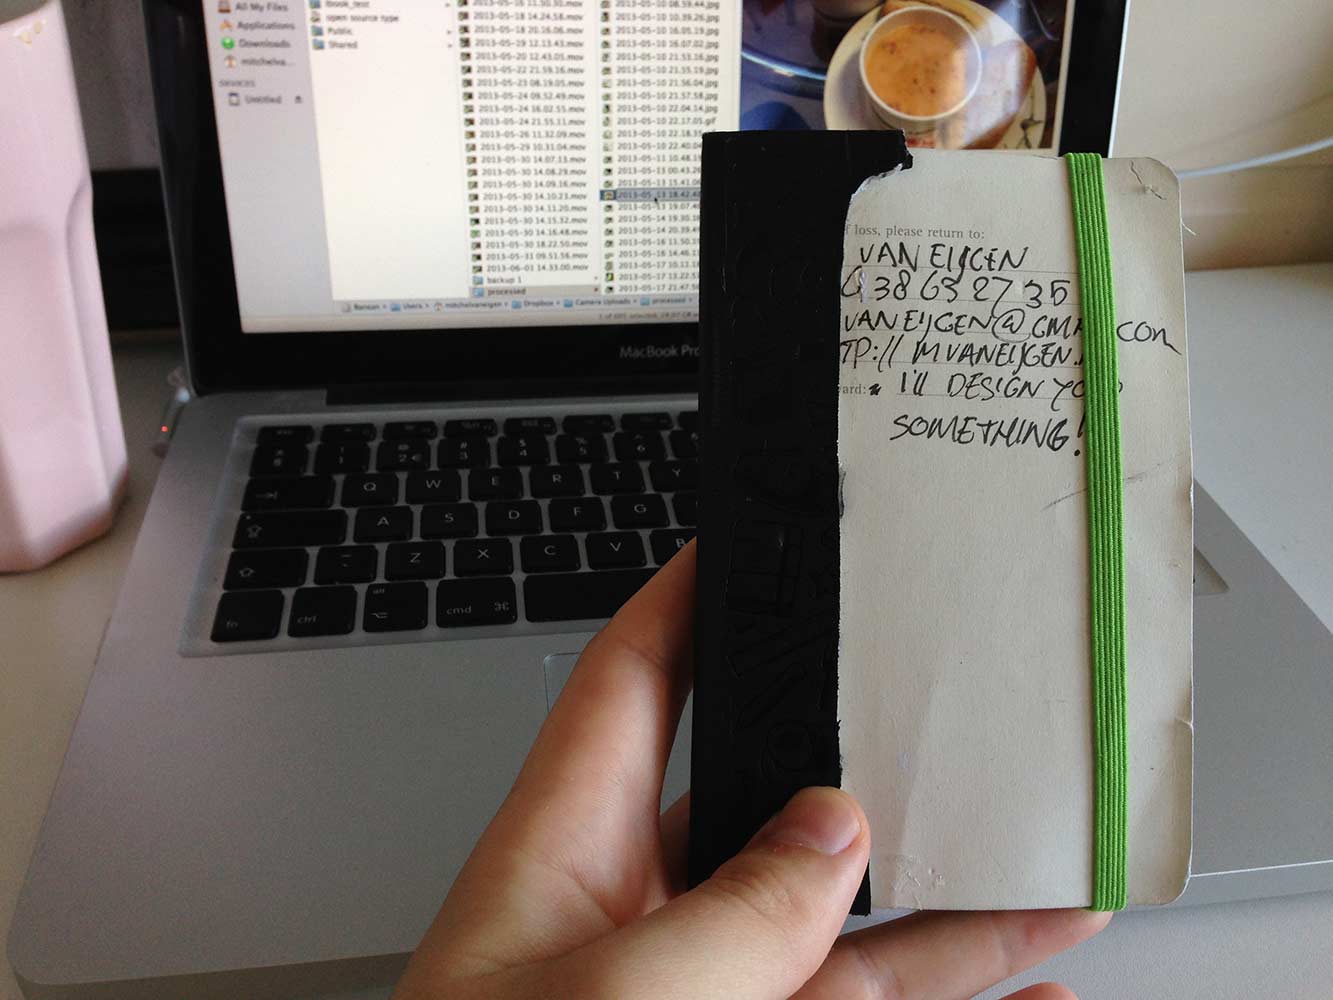 All My Files
Applications
Downloads
mitchelva...
DEVICES
Untitled
ibook_test
open source type
Public
Shared
2013-05-16 11.50.30.mov
2013-05-18 14.24.58.mov
2013-05-18 20.16.06.mov
2013-05-19 12.13.43.mov
2013-05-20 12.43.05.mov
2013-05-22 21.59.16.mov
2013-05-23 08.19.05.mov
2013-05-24 09.52.49.mov
2013-05-24 16.02.55.mov
2013-05-24 21.55.11.mov
2013-05-26 11.32.09.mov
2013-05-29 10.31.04.mov
2013-05-30 14.07.13.mov
2013-05-30 14.08.29.mov
2013-05-30 14.09.16.mov
2013-05-30 14.10.23.mov
2013-05-30 14.11.20.mov
2013-05-30 14.15.32.mov
2013-05-30 14.16.48.mov
2013-05-30 18.22.50.mov
2013-05-31 09.51.56.mov
2013-06-01 14.33.00.mov
backup 1
processed
2013-05-10 08.59.44.jpg
2013-05-10 16.05.19.jpg
2013-05-10 16.07.02.jpg
2013-05-10 21.53.16.jpg
2013-05-10 21.55.19.jpg
2013-05-10 21.56.04.jpg
2013-05-10 21.57.58.jpg
2013-05-10 22.04.14.jpg
2013-05-10 22.17.05.gif
2013-05-10 22.18.35
2013-05-10 22.40.04
2013-05-11 10.48.19
2013-05-13 00.43.2
2013-05-13 15.41.06
2013-05-13 18.42.4
2013-05-13 19.07.40
2013-05-14 19.30.18
2013-05-14 20.39.49
2013-05-16 13.50.19
2013-05-16 14.46.11
2013-05-17 10.17.1
2013-05-17 13.22.5
2013-05-17 21.47.50
Users mitchelvaneigen Dropbox Camera Uploads processed
MacBook Pro
f loss, please return to:
VAN EIJGEN
38 63 27 35
VANEIJGEN@GMA COM
TP:// MVANEIJGEN.
ard: I'll DESIGN YO
SOMETHING!
esc
1 2 3 4 5 6
€
Q W E R T Y
A S D F G
Z X C V B
fn ctrl alt cmd ⌘